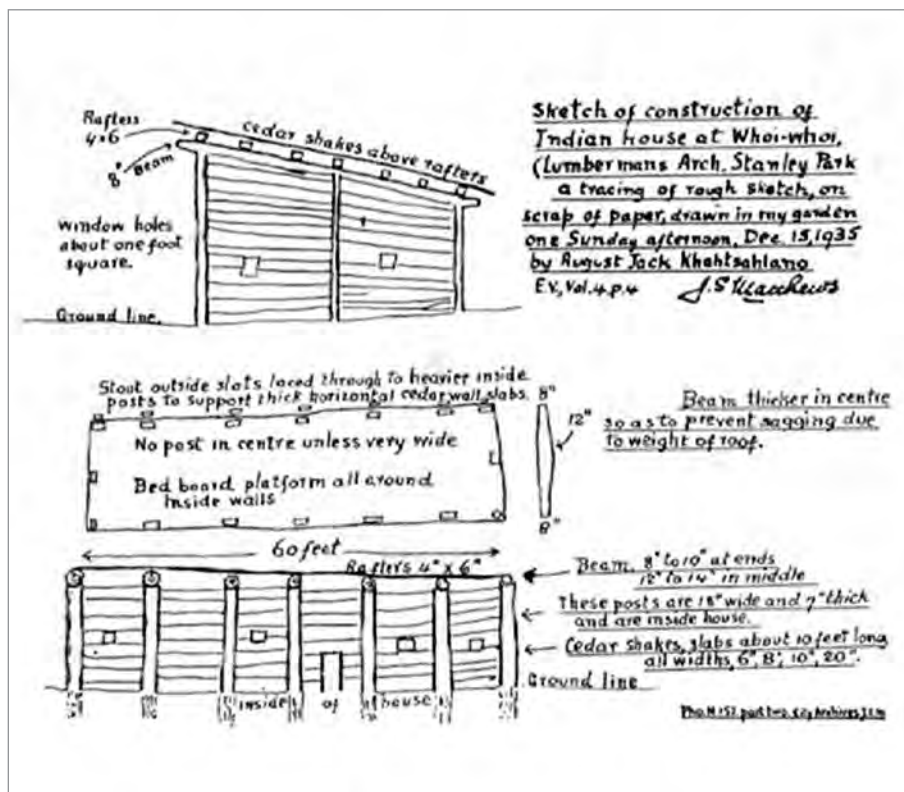 Rafters
4x6
8" Beam
cedar shakes above rafters
window holes
about one foot
square.
Ground line.
Sketch of construction of
Indian house at Whoi-whoi,
(Lumbermans Arch, Stanley Park
a tracing of rough sketch, on
scrap of paper, drawn in my garden
one Sunday afternoon, Dec. 15, 1935
by August Jack Khahtsahlano
E.V., Vol. 4. p. 4 J.S. Matthews
Stout outside slats laced through to heavier inside
posts to support thick horizontal cedar wall slabs.
No post in centre unless very wide
Bed board platform all around
inside walls
8"
12"
8"
Beam thicker in centre
so as to prevent sagging due
to weight of roof.
60 feet
Rafters 4" x 6"
Beam, 8" to 10" at ends
12" to 14" in middle
These posts are 18" wide and 7" thick
and are inside house.
Cedar shakes, slabs about 10 feet long
all widths, 6", 8", 10", 20".
Ground line
inside of house